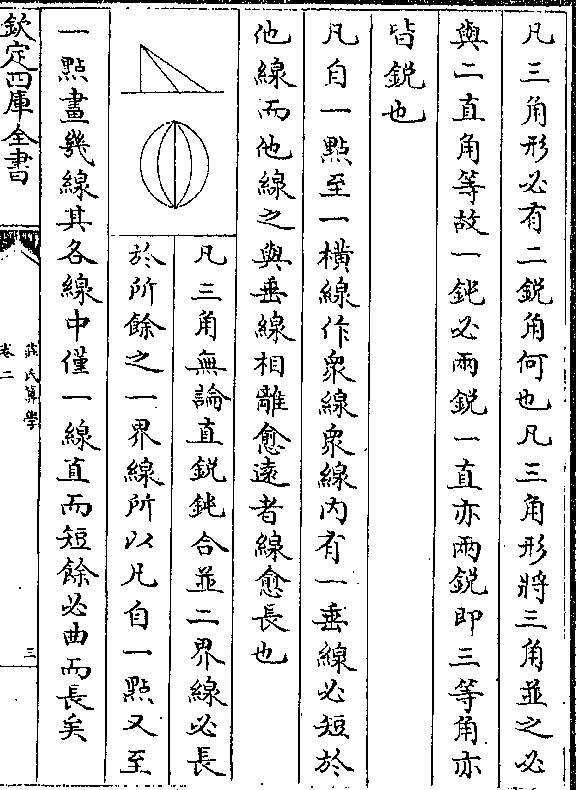 凡三角形必有二銳角何也凡三角形將三角並之必
與二直角等故一鈍必兩銳一直亦兩銳即三等角亦
皆銳也
凡自一點至一橫線作衆線衆線內有一垂線必短於
他線而他線之與垂線相離愈遠者線愈長也
凡三角無論直銳鈍合並二界線必長
於所餘之一界線所以凡自一點又至
一點畫幾線其各線中僅一線直而短餘必曲而長矣
欽定四庫全書
莊氏算學
卷二
三